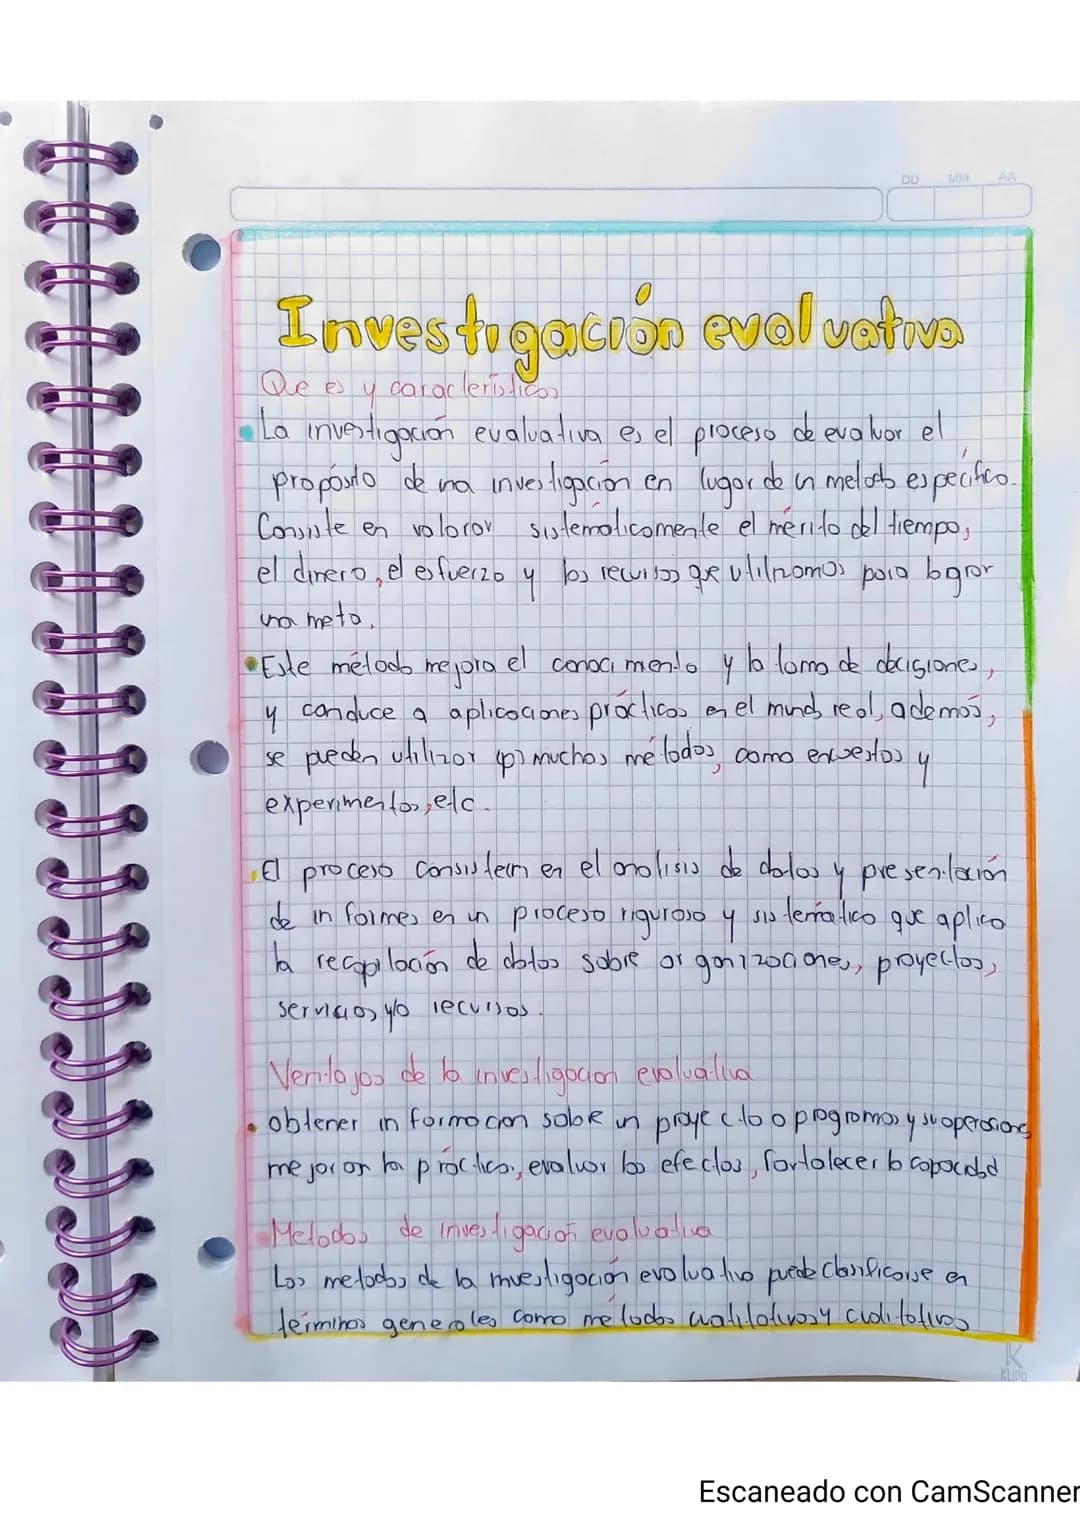 DD MM AA
Investigación evaluativa
Que es y caracteristicas
La investigación evaluativa es el proceso de evaluar el
propósito de una investigación en lugar de un metodo específico.
Consiste en valorar sistematicamente el mérito del tiempo,
el dinero, el esfuerzo y los recursos que utilizamos para lograr
una meta.
Este método mejora el conocimento y la toma de decisiones,
y conduce a aplicaciones prácticas en el mundo real, ademas,
se pueden utilizar muchos métodos, como encuestas y
experimentos, etc.
El proceso consiste en el analisis de datos y presentación
de informes en un proceso riguroso y sistematico que aplica
la recopilación de datos sobre organizaciones, proyectos,
servicios y/o recursos.
Ventajas de la investigacion evaluativa
obtener informacion sobre un proyecto o programas y su operaciones
mejoran la práctica, evaluar los efectos, fortalecer la capacidad
Metodos de investigación evaluativa
Los metodos de la investigación evaluativa puede clasificarse en
términos generales como metodos cualitativos y cualitativos
K
KLIPP
Escaneado con CamScanner